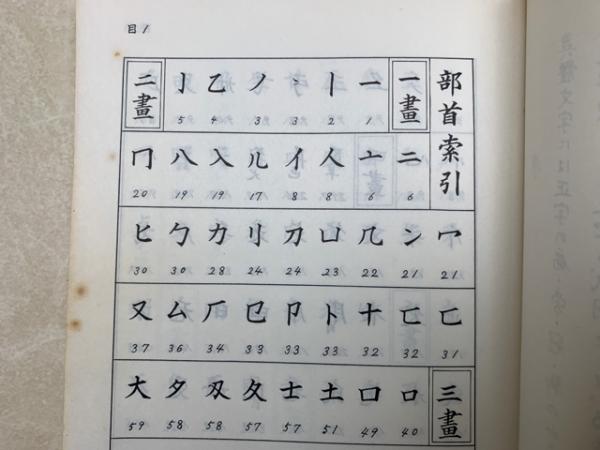 目1
部首索引
一畫 一 丨 丶 ノ 乙 亅 二畫
1 2 3 3 4 5
二 亠 人 亻 儿 入 八 冂
6 6 8 8 17 19 19 20
冖 冫 几 凵 刀 刂 力 勹 匕
21 21 22 23 24 24 28 30 30
匚 匸 十 卜 卩 㔾 厂 厶 又
31 32 32 33 33 33 34 36 37
三畫 口 囗 土 士 夂 夊 夕 大
40 49 51 57 57 58 58 59